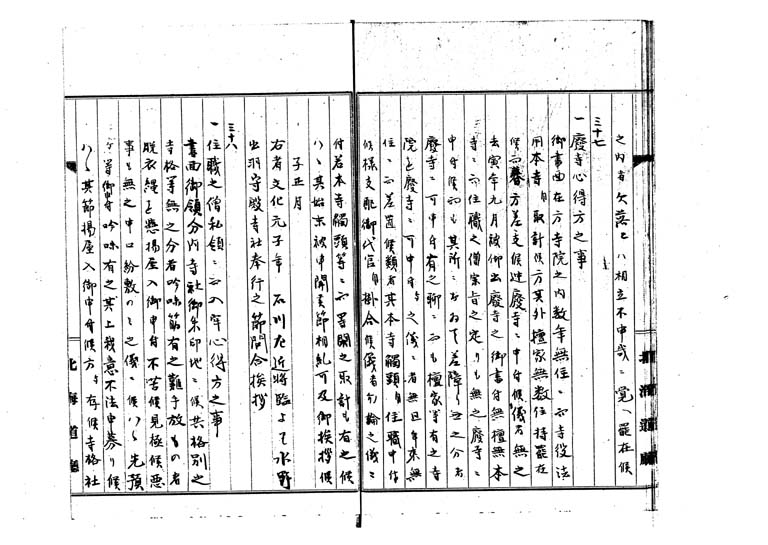 之内者欠落とハ相立不申哉ニ覚へ罷在候
三十七
一 廃寺心得方之事
御書面在方寺院之内数年無住ニ而寺役法
用本寺自取計候方其外檀家無数住持罷在
候而暮方差支候迚廃寺ニ申付候儀者無之
去寅年九月被仰出廃寺之御書付無檀無本
寺ニ而住職之僧宗旨之定りも無之廃寺ニ
申付候而も其所ニおゐて差障り無之分者
廃寺ニ可申付有之聊ニ而も檀家等有之寺
院を廃寺ニ可申付与之儀ニ者無且年来無
住ニ而差置候類者其本寺觸頭自住職申付
候様支配御代官自掛合候儀者勿論之儀ニ
付若本寺觸頭等ニ而等閑之取計も有之候
ハヽ其始末被申聞其節相糺可及御挨拶候
子正月
右者文化元子年 石川左近将監より水野
出羽守殿寺社奉行之節問合挨拶
三十八
一 住職之僧私領ニ而入牢心得方之事
書面御領分内寺社御朱印地ニ候共格別之
寺格等無之分者吟味筋有之難手放もの者
脱衣縄を懸揚屋入御申付不苦候見極候悪
事も無之申口紛敷のミ之儀ニ候ハヽ先預
ケ等御申付吟味有之其上我意不法申募り候
ハヽ其節揚屋入御申付候方与存候寺格社
北海道廳